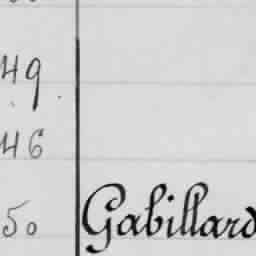 49
46
50 Gabillard